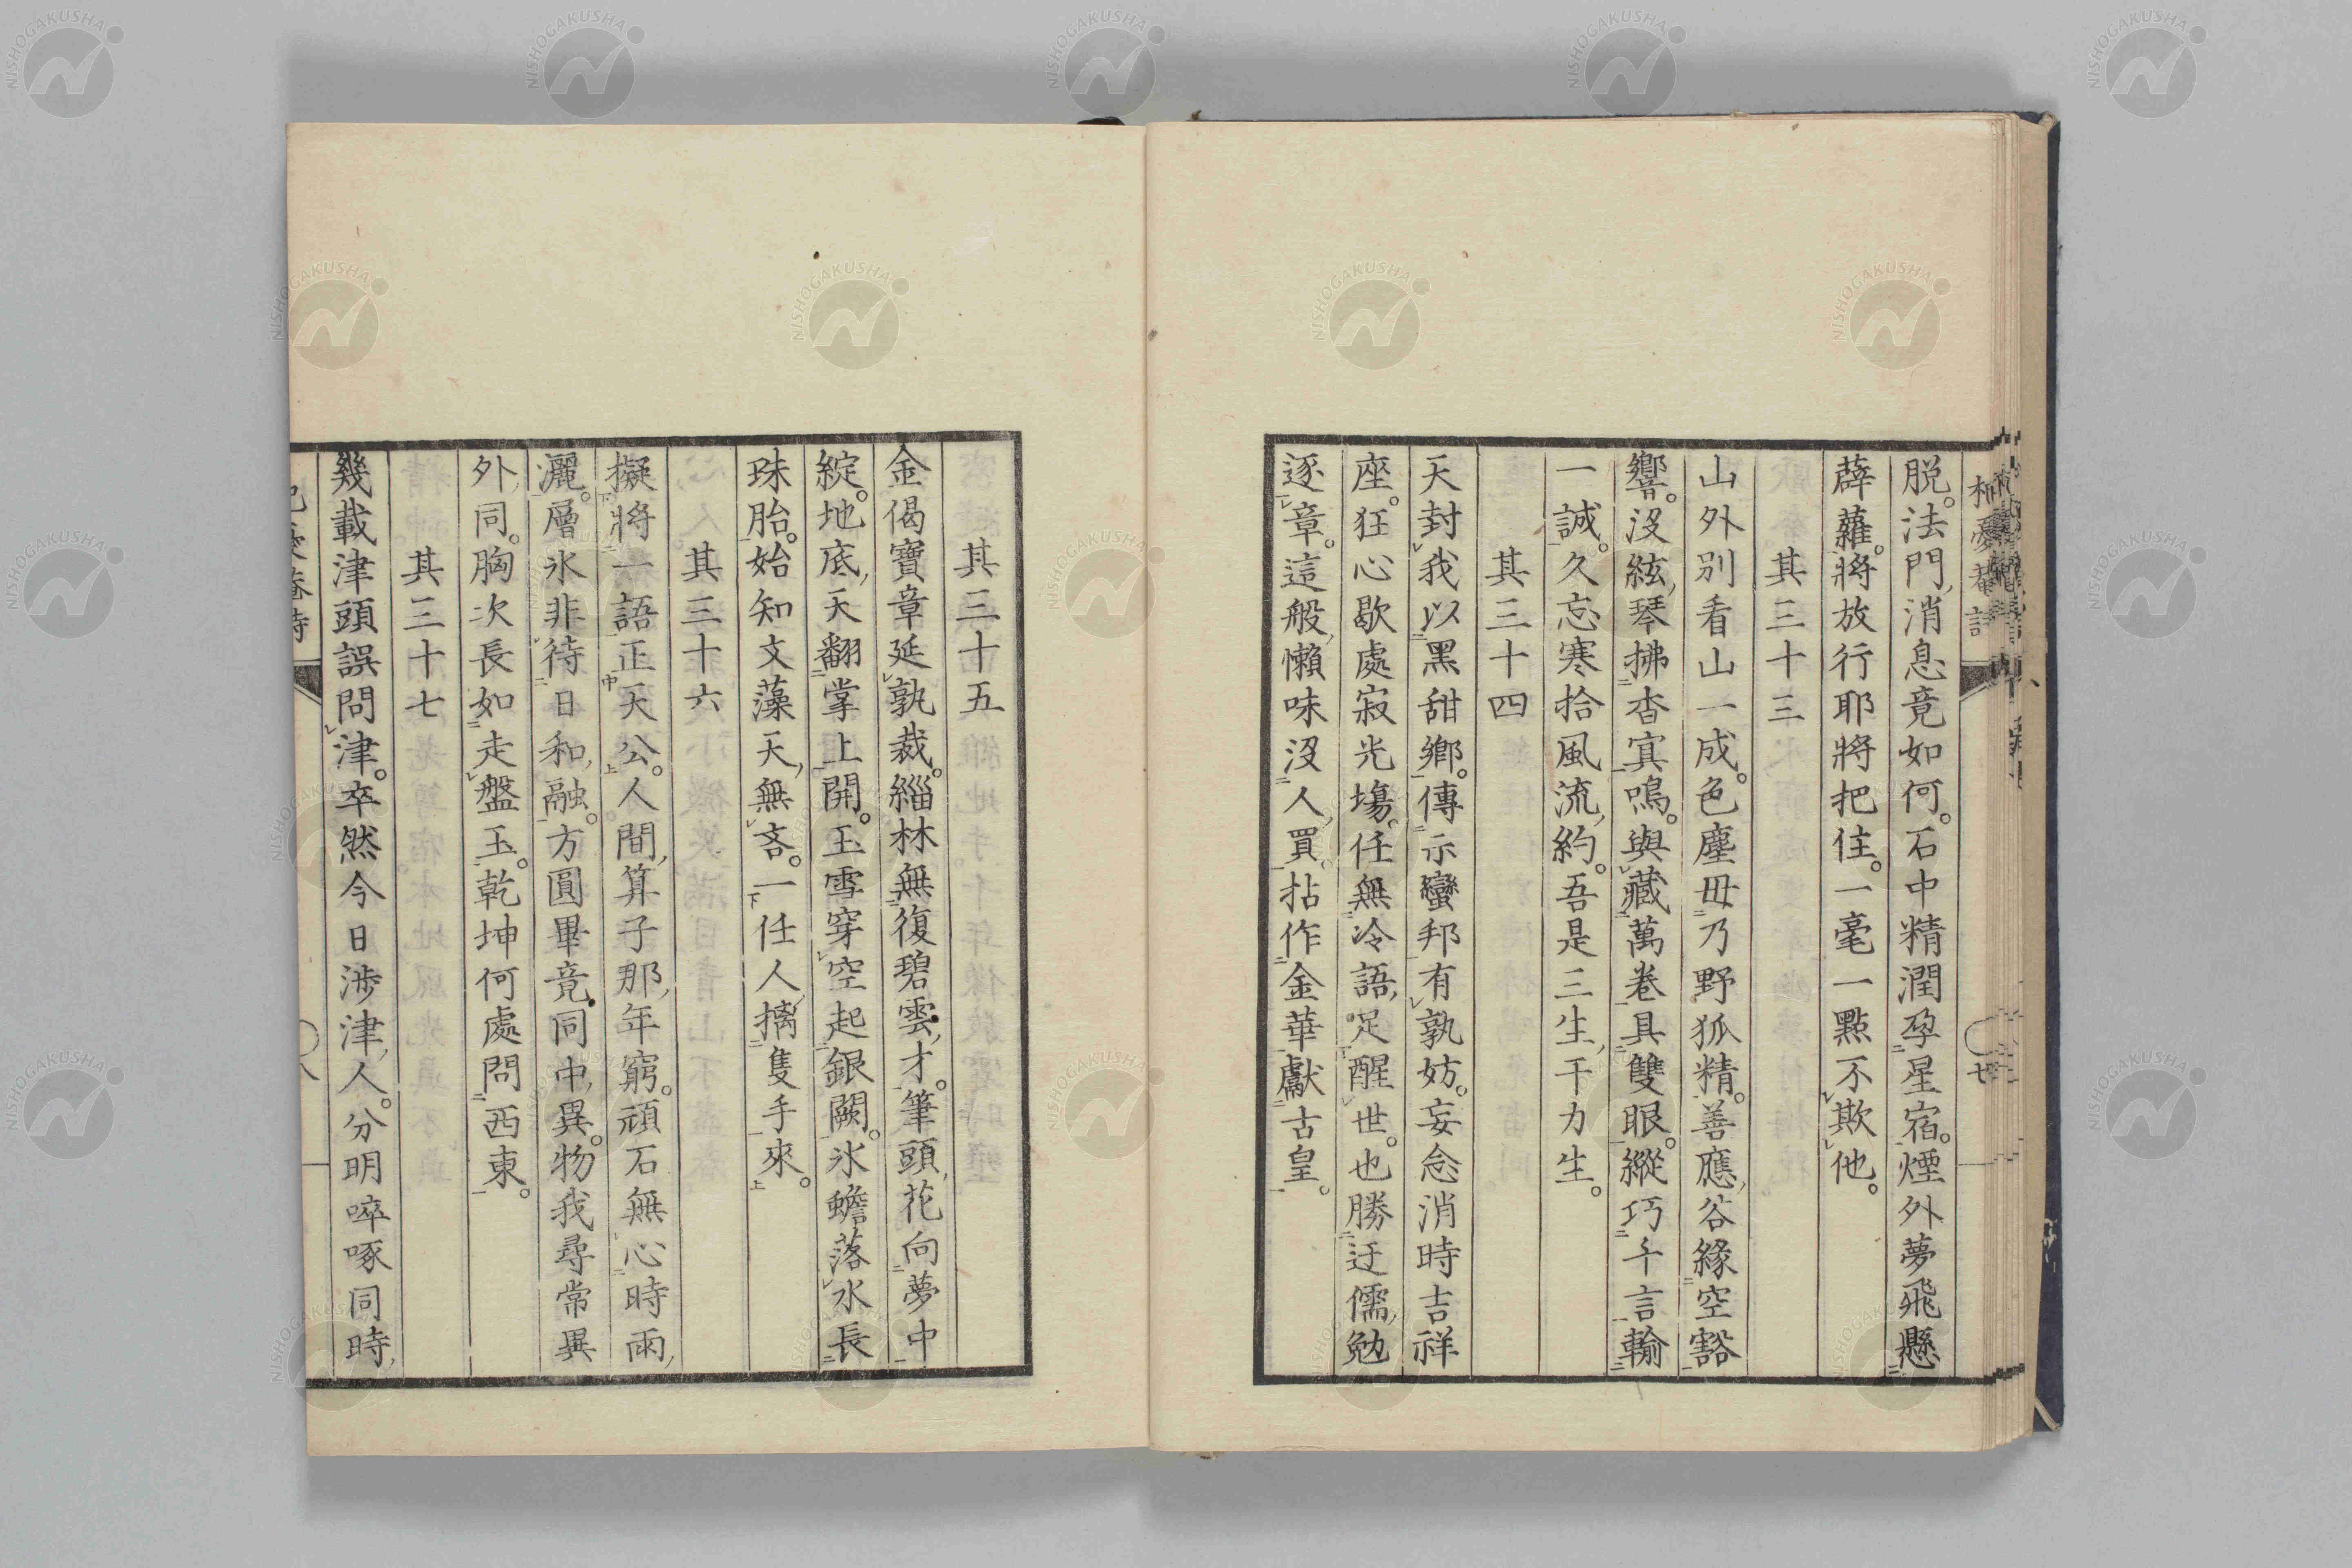 脱。法門消息竟如何。石中精潤孕星宿。煙外夢飛懸
薜蘿。將放行耶將把住。一毫一點不欺他。
其三十三
山外別看山一成。色塵毋乃野狐精。善應谷緣空豁
響。沒絃琴拂杳冥鳴。與藏萬卷具雙眼。縱巧千言輸
一誠。久忘寒拾風流約。吾是三生干力生。
其三十四
天封我以黑甜鄉。傳示蠻邦有孰妨。妄念消時吉祥
座。狂心歇處寂光場。任無冷語足醒世。也勝迂儒勉
逐章。這般懶味沒人買。拈作金華獻古皇。
其三十五
金偈寶章延孰裁。緇林無復碧雲才。筆頭花向夢中
綻。地底天翻掌上開。玉雪穿空起銀闕。氷蟾落水長
珠胎。始知文藻天無吝。一任人摛隻手來。
其三十六
擬將一語正天公。人間算子那年窮。頑石無心時雨
灑。層氷非待日和融。方圓畢竟同中異。物我尋常異
外同。胸次長如走盤玉。乾坤何處問西東。
其三十七
幾載津頭誤問津。卒然今日渉津人。分明啐啄同時
NISHOGAKUSHA